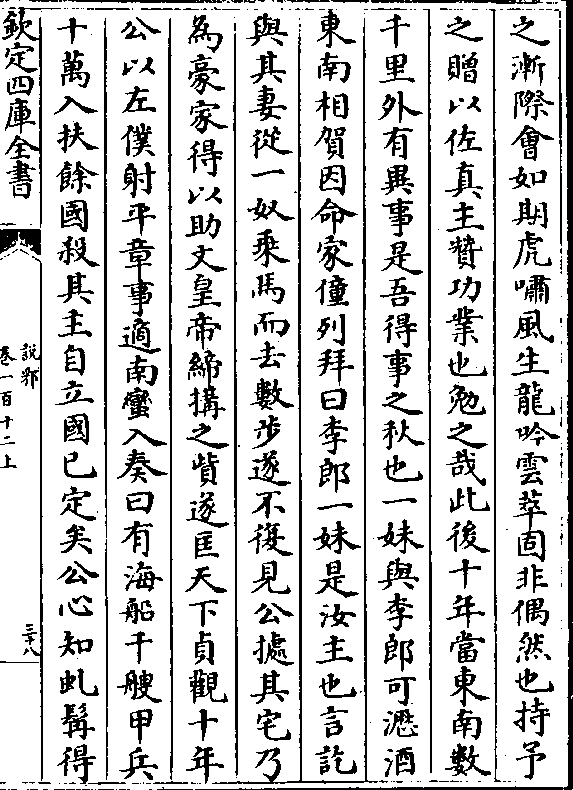 之漸際會如期虎嘯風生龍吟雲萃固非偶然也持予
之贈以佐真主贊功業也勉之哉此後十年當東南數
千里外有異事是吾得事之秋也一妹與李郎可瀝酒
東南相賀因命家僮列拜曰李郎一妹是汝主也言訖
與其妻從一奴乘馬而去數步遂不復見公據其宅乃
為豪家得以助文皇帝締搆之貲遂匡天下貞觀十年
公以左僕射平章事適南蠻入奏曰有海船千艘甲兵
十萬入扶餘國殺其主自立國已定矣公心知虬髯得
欽定四庫全書
說郛
卷一百十二上
三十八